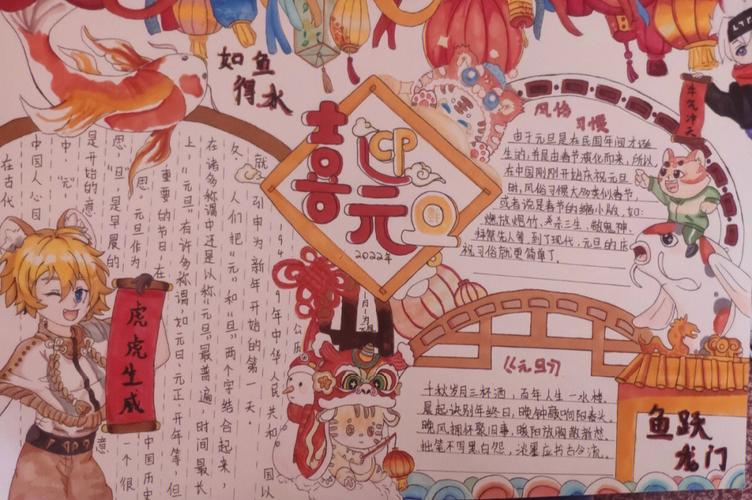 如鱼
得水
喜迎元旦
2022年
牛气冲天
虎虎生威
1949年中华人民共和国以
公历
就引申为新年开始的第一天。
人们把“元”和“旦”两个字结合起来,
在诸多称谓中还是以称“元旦”最普遍 时间最长
上,“元旦”有许多称谓,如元日、元正、开年等,但
重要的节日,在中国历史
旦。元旦作为一个很
思,“旦”是早晨的意
是开始的意
中“元”
中国人心目
在古代
风俗
习惯
由于元旦是在民国年间才诞
生的,并且由春节演化而来,所以
在中国刚刚开始庆祝元旦
时,风俗习惯大多类似春节,
或者说是春节的缩小版,如:
燃放烟竹、杀杀三生、敬鬼神、
拜祭先人等,到了现代,元旦的庆
祝习俗就更简单了.
《元旦》
千秋岁月三杯酒,百年人生一水楼。
晨起诀别年终日,晚钟敲响阳春头。
晚风拥杯聚旧事,暖阳放胸散着愁。
拙笔不写黑白怨,淡墨应书古今流。
鱼跃
龙门